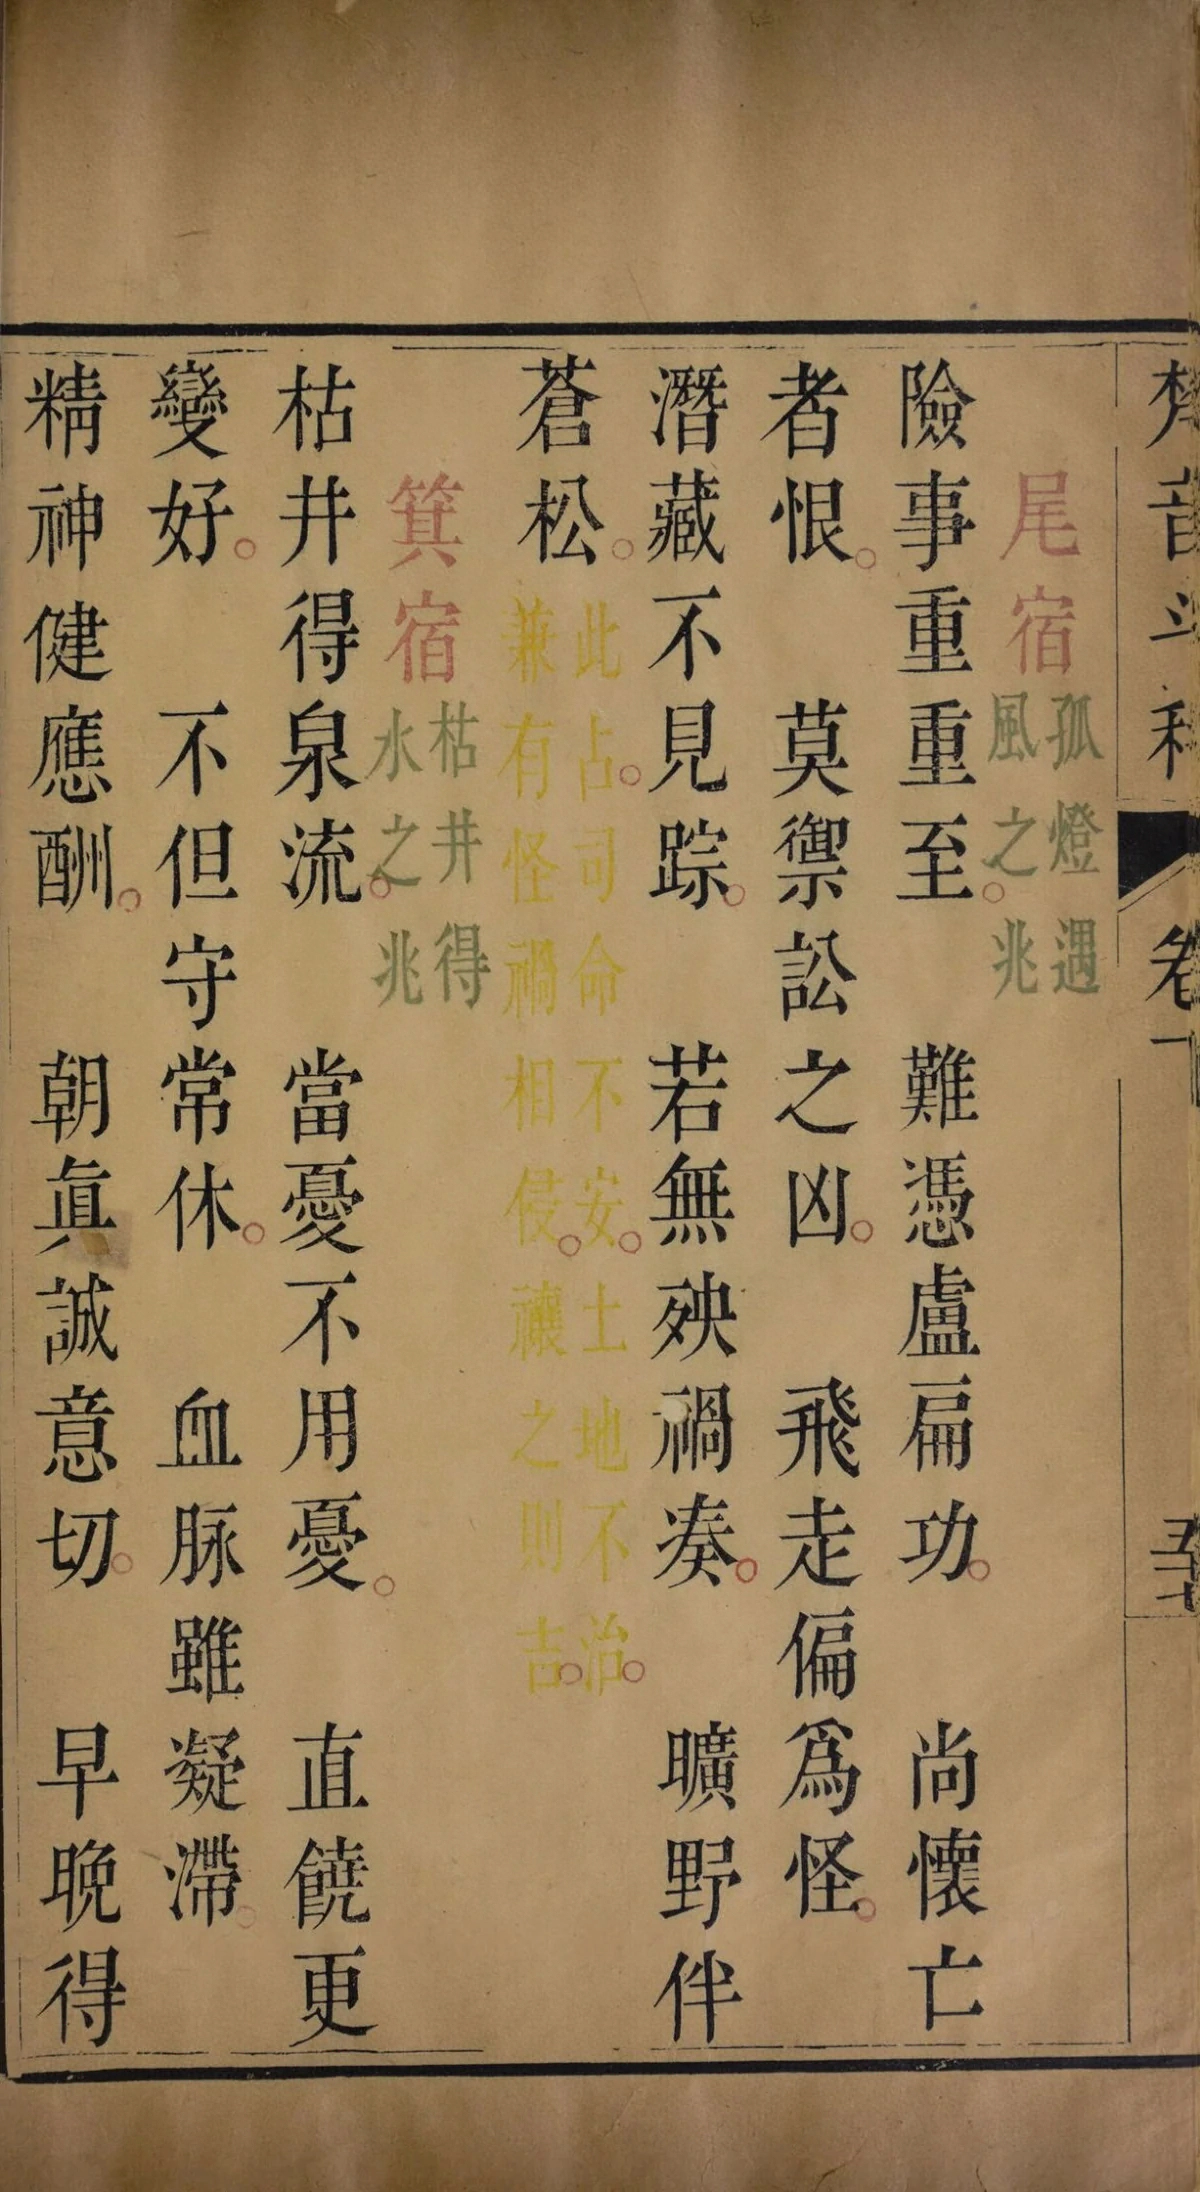 梵音斗科 卷下 五十七
尾宿 孤燈遇風之兆
險事重重至。 難憑盧扁功。 尚懷亡
者恨。 莫禦訟之凶。 飛走偏爲怪。
潛藏不見踪。 若無殃禍凑。 曠野伴
蒼松。 此占司命不安。土地不治。兼有怪禍相侵。禳之則吉。
箕宿 枯井得水之兆
枯井得泉流。 當憂不用憂。 直饒更
變好。 不但守常休。 血脉雖凝滯。
精神健應酬。 朝眞誠意切。 早晚得